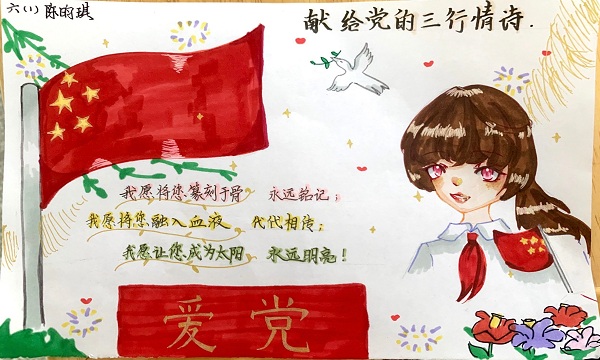 六(1) 陈昀琪
献给党的三行情诗.
我愿将您篆刻于骨 永远铭记；
我愿将您融入血液 代代相传；
我愿让您成为太阳 永远明亮！
爱党